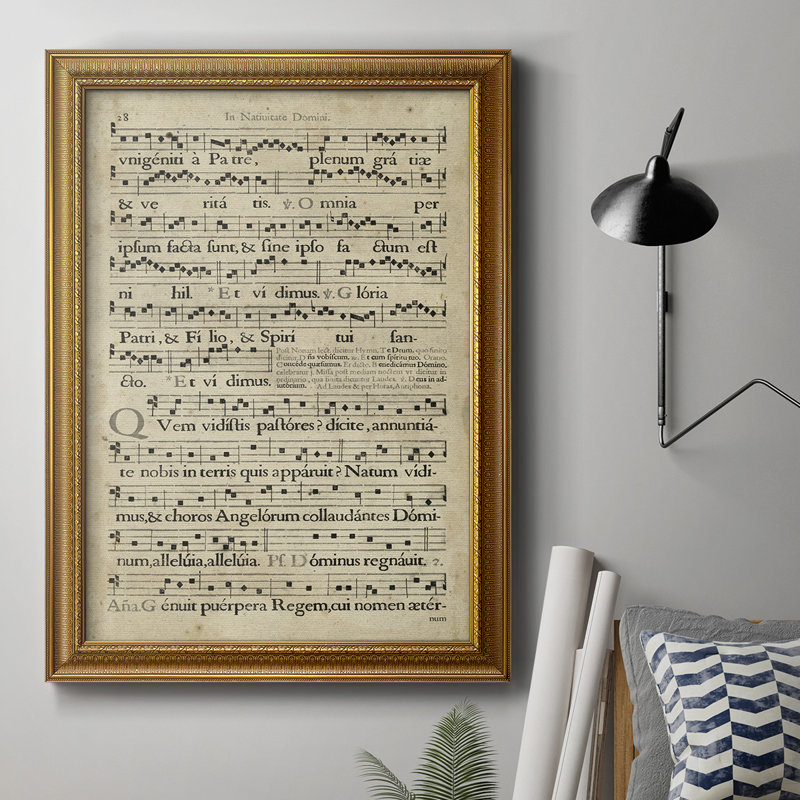 28 In Natiuitate Domini.
vnigéniti à Pa tre, plenum grá tiæ
& ve ritá tis. ℣. O mnia per
ipsum facta sunt, & sine ipso fa ctum est
ni hil. * Et ví dimus. ℣. Glória
Patri, & Fí lio, & Spirí tui san-
Post Nonam lect. dicitur Hymn. Te Deum, quo finito
dicitur, Dñs vobiscum. Et cum spiritu tuo. Oratio.
Concéde quæsumus. Et dicto, Benedicámus Dómino,
celebratur j. Missa post mediam noctem vt dicitur in
ordinario, qua finita dicuntur Laudes. Deus in ad-
iutórium. Ad Laudes & per Horas, Antiphona.
cto. * Et ví dimus.
QVem vidístis pastóres? dícite, annuntiá-
te nobis in terris quis appáruit? Natum vídi-
mus, & choros Angelórum collaudántes Dómi-
num, allelúia, allelúia. Ps. Dóminus regnáuit. 2.
Aña. Génuit puérpera Regem, cui nomen ætér-
num